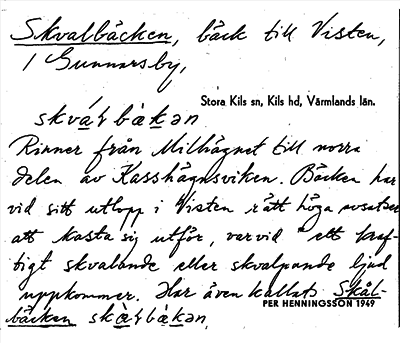 Skvalbäcken, bäck till Visten,
i Gunnarsby,
Stora Kils sn, Kils hd, Värmlands län.
skvá̱ɽbä̀ḵən
Rinner från Milhägnet till norra
delen av Kasshägnsviken. Bäcken har
vid sitt utlopp i Visten rätt höga avsatser
att kasta sig utför, varvid ett kraf-
tigt skvalande eller skvalpande ljud
uppkommer. Har även kallats Skål-
PER HENNINGSSON 1949
bäcken